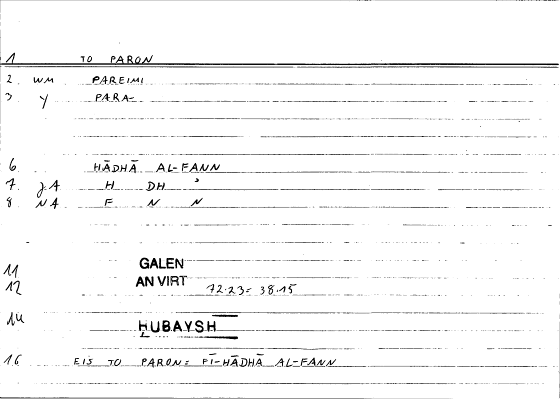 1 TO PARON
2 WM PAREIMI
3 Y PARA-
6 HĀDHĀ AL-FANN
7 JA H DH ʾ
8 NA F N N
11 GALEN
12 AN VIRT 72.23 = 38.15
14 ḤUBAYSH
16 EIS TO PARON = FĪ-HĀDHĀ AL-FANN